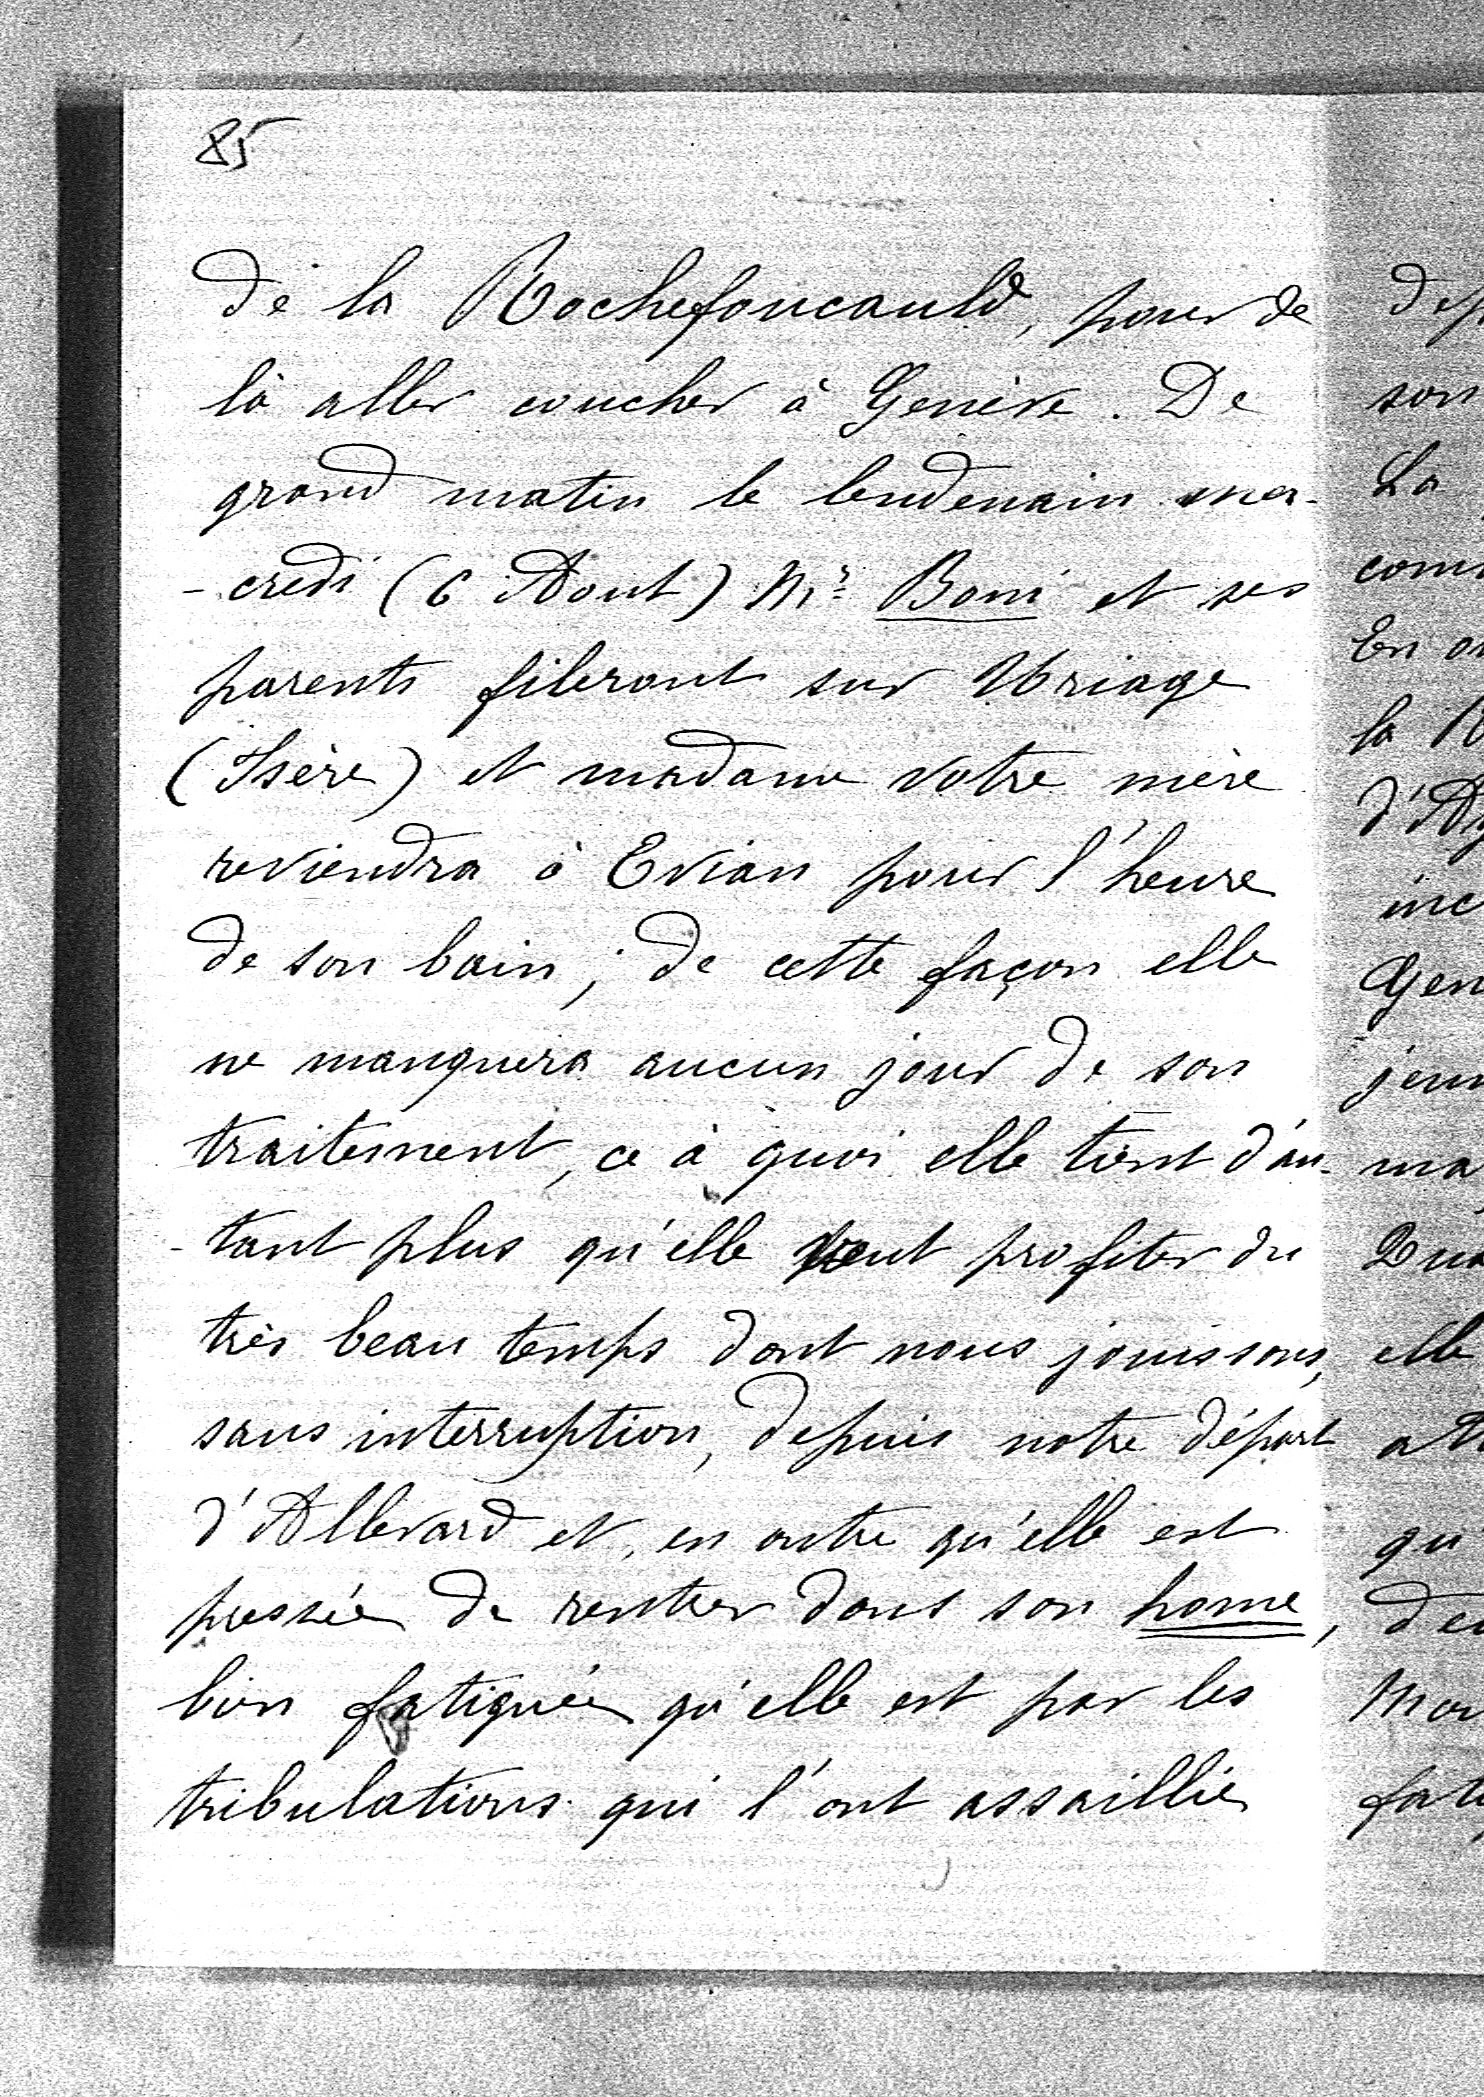 85
de la Rochefoucauld, pour de
là aller coucher à Genève. De
grand matin le lendemain mer-
-credi (6 Aout) Mr Boni et ses
parents fileront sur Uriage
(Isère) et madame votre mère
reviendra à Evian pour l'heure
de son bain ; de cette façon elle
ne manquera aucun jour de son
traitement, ce à quoi elle tient d'au-
-tant plus qu'elle veut profiter du
très beau temps dont nous jouissons,
sans interruption, depuis notre départ
d'Allevard et, en outre qu'elle est
pressée de rentrer dans son home,
bien fatiguée qu'elle est par les
tribulations qui l'ont assaillie
son
La
En
elle